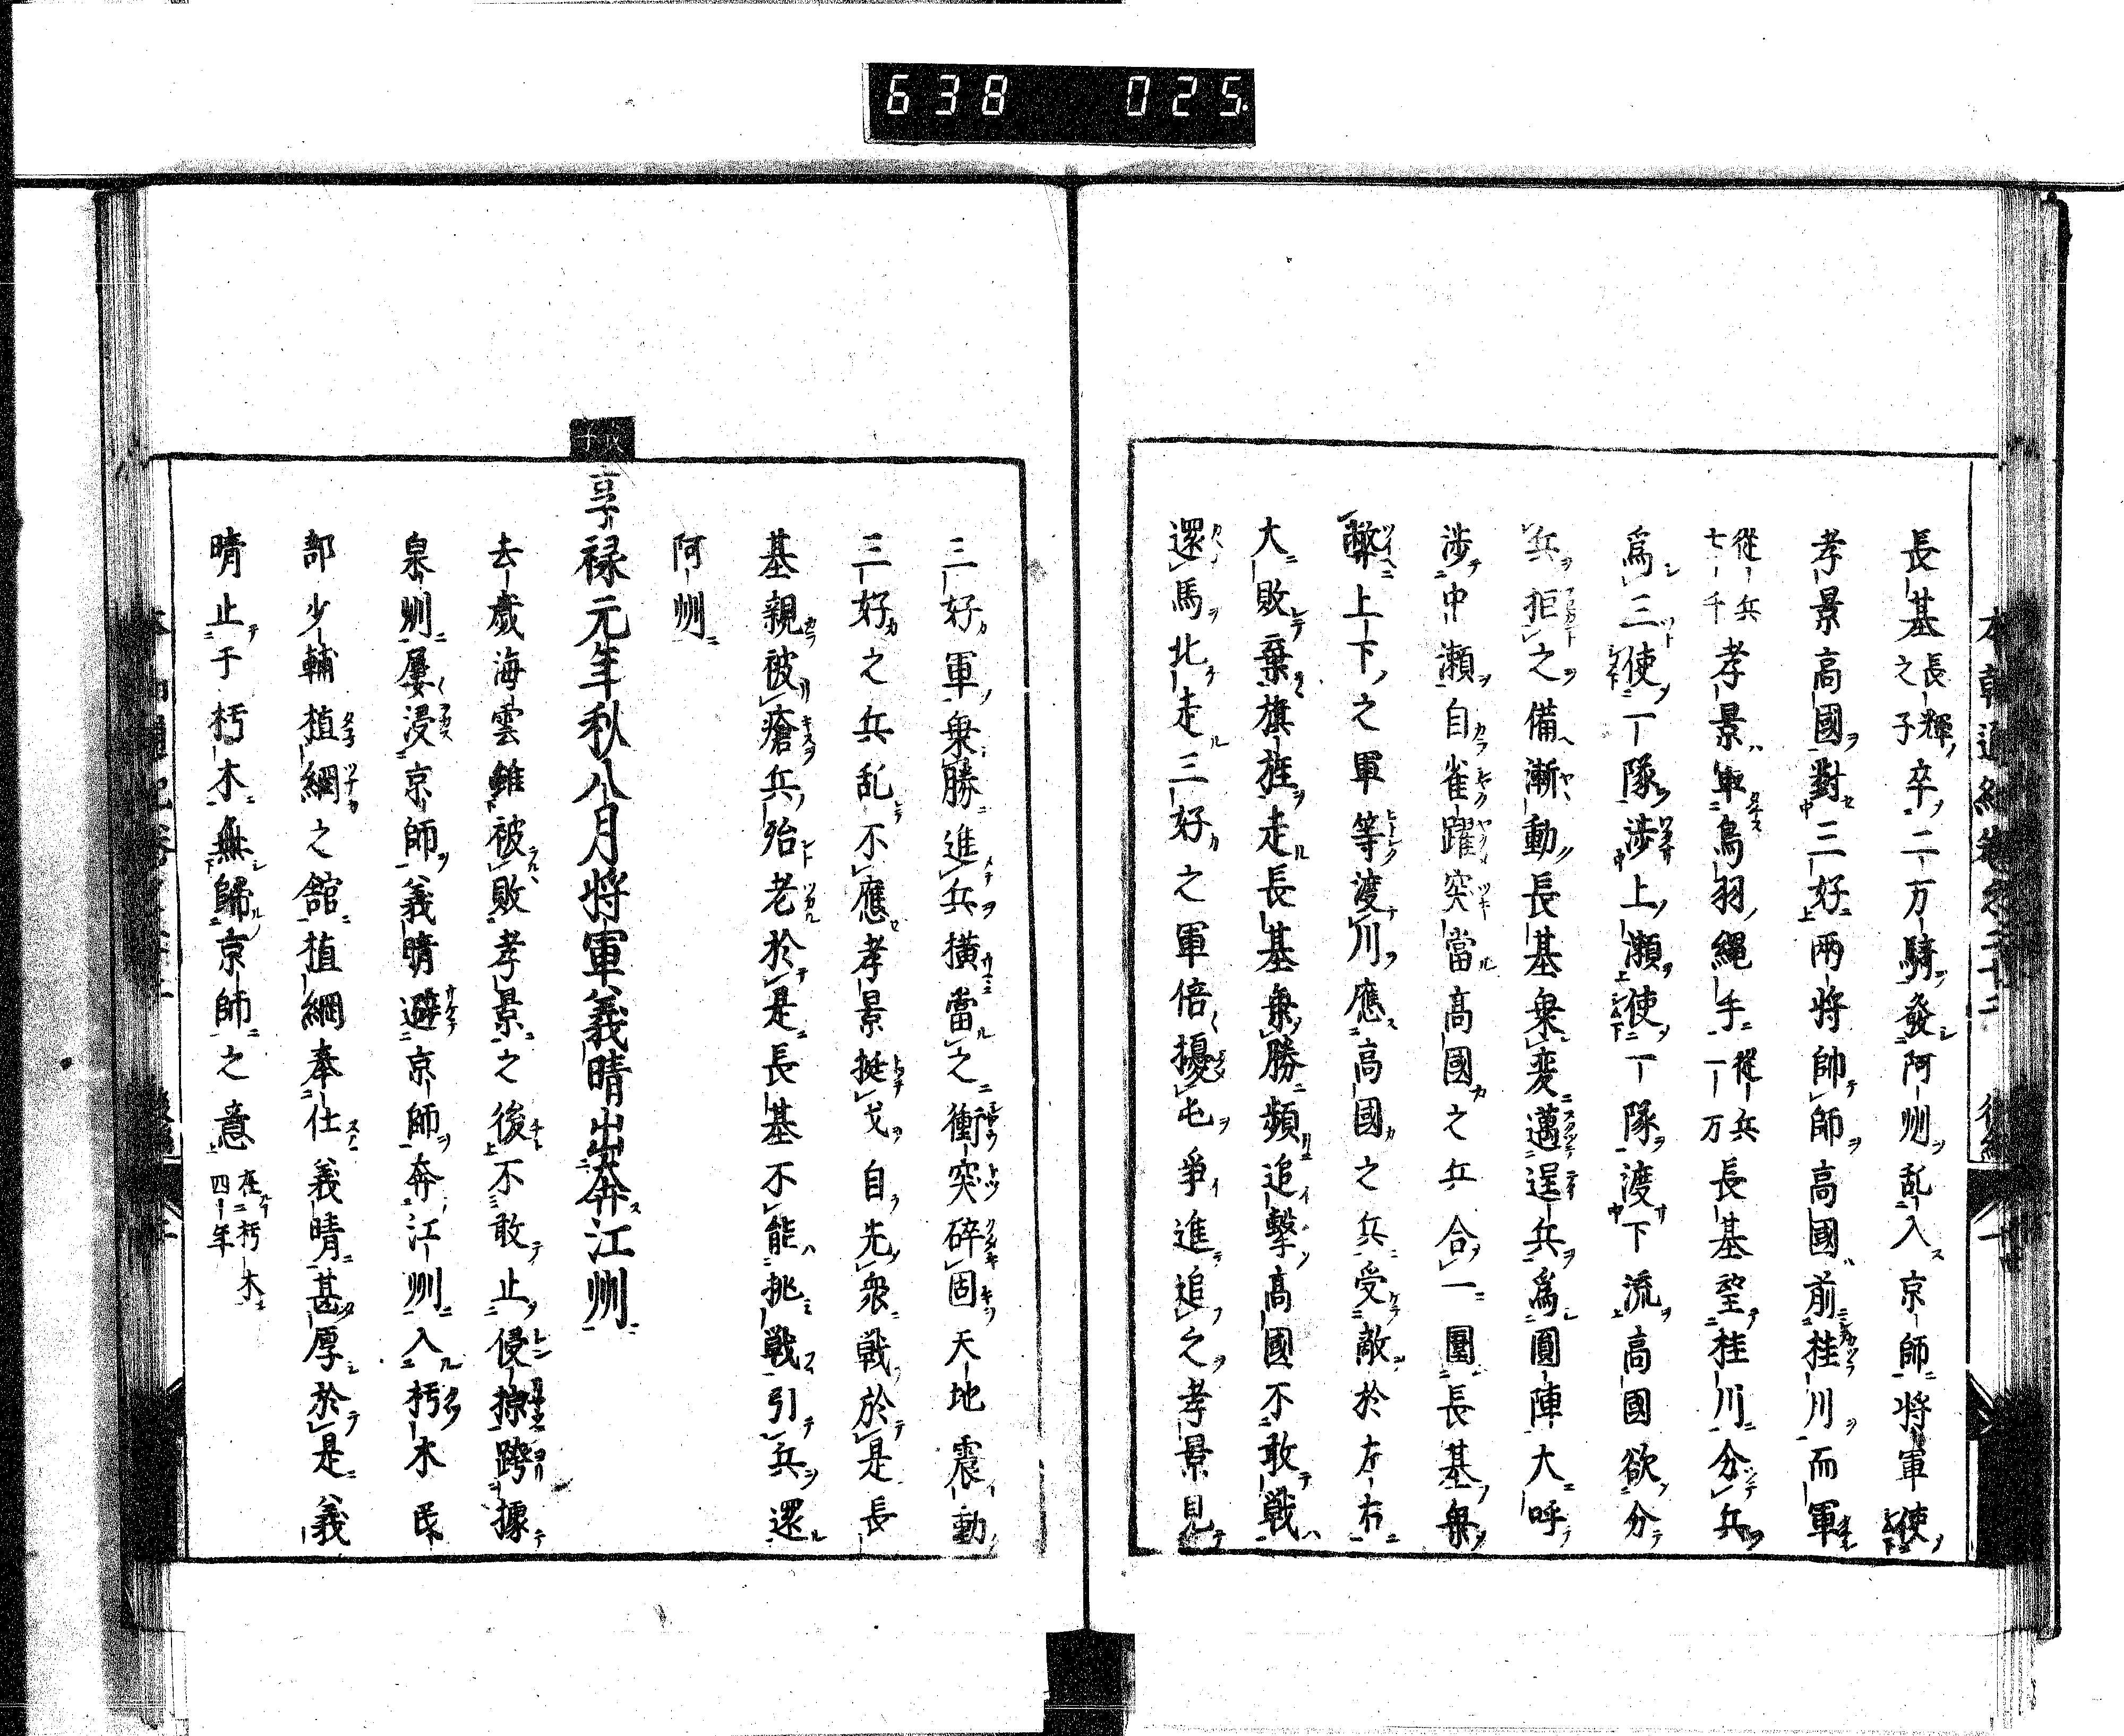 638 025
長基長輝之子卒二万騎發阿州乱入京師將軍使
孝景高國對三好兩将帥師高國前桂川而軍
從兵七千孝景軍鳥羽縄手從兵一万長基望桂川分兵
爲三使一隊渉上瀬使一隊渡下流高國欲分
兵拒之備漸動長基乗変邁逞兵爲圓陣大呼
渉中瀬自雀躍突當高國之兵合一圍長基乗
弊上下之軍等渡川應高國之兵受敵於左右
大敗棄旗旌走長基乗勝頻追撃高國不敢戦
還馬北走三好之軍倍擾屯爭進追之孝景見
三好軍乗勝進兵横當之衝突碎固天地震動
三好之兵乱不應孝景挺戈自先衆戦於是長
基親被瘡兵殆老於是長基不能挑戦引兵還
阿州
戊子
享禄元年秋八月将軍義晴出奔江州
去歳海雲雖被敗孝景之後不敢止侵掠跨據
泉州屢浸京師義晴避京師奔江州入朽木民
部少輔植綱之舘植綱奉仕義晴甚厚於是義
晴止于朽木無歸京師之意在朽木四年